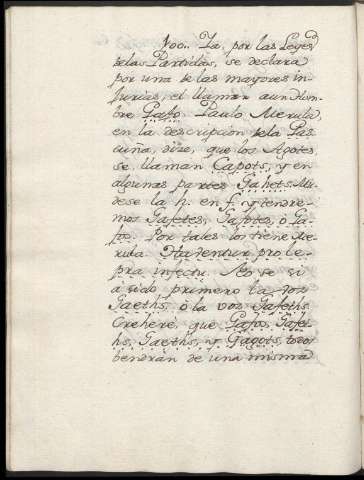 Voc.. Ya, por las Leyes
de las Partidas, se declara
por una de las mayores in-
jurias, el llamar a un Hom-
bre Gafo. Paulo Merula
en la descripcion de la Gas
cuña, dize, que los Agotes
se llaman Capots, y en
algunas partes Gahets. Mu
dese la h. en f. y tendre-
mos Gafetes, Gafotes, ò Ga-
fos. Por tales los tiene Me-
rula. Habentur pro le-
pra infectis. No se si
à sido primero la voz
Gaeths, ò la voz Gafeths
Crehere, que Gafos, Gafet-
hs, Gaeths, y Gagots, todos
bendràn de una misma